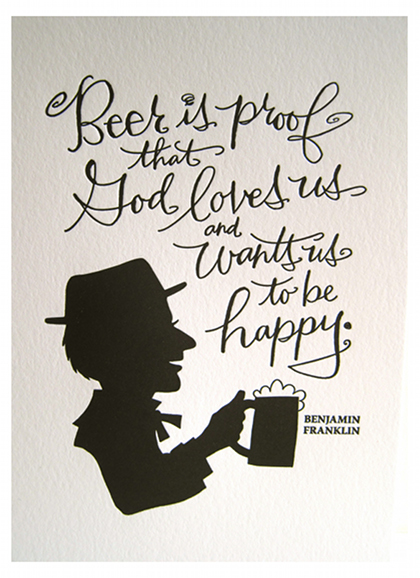 Beer is proof
that
God loves us
and
wants us
to be
happy.
BENJAMIN
FRANKLIN